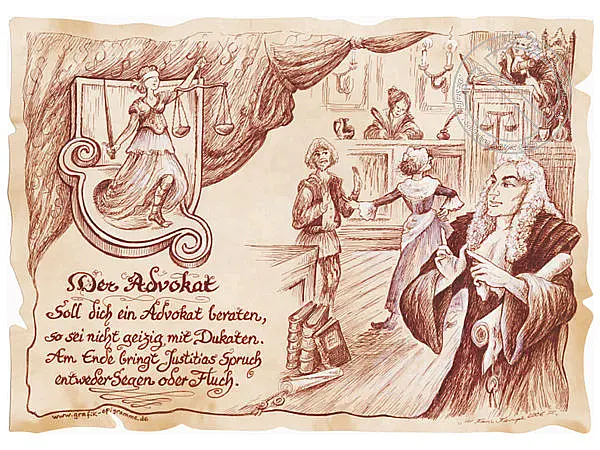 Der Advokat
Soll dich ein Advokat beraten,
so sei nicht geizig mit Dukaten.
Am Ende bringt Justitias Spruch
entweder Segen oder Fluch.
www.grafik-epigramme.de